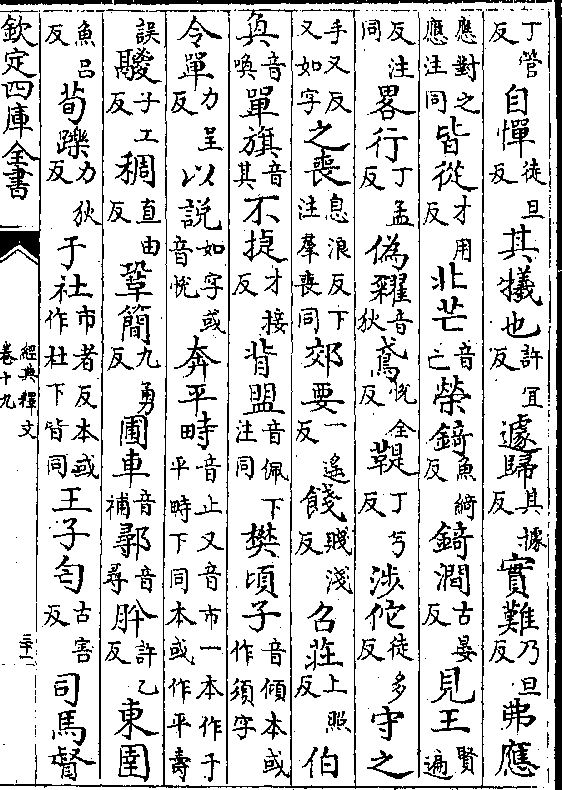 丁管反自憚徒旦反其犧也許宜反遽歸其據反實難乃旦反弗應
應對之應注同皆從才用反北芒音亡榮錡魚綺反錡澗古晏反見王賢遍
反注同畧行丁孟反偽糴音狄鳶悅全反鞮丁兮反涉佗徒多反守之
手又反又如字之喪息浪反下注羣喪同郊要一遙反餞賤淺反召莊上照反伯
奐音喚單旗音其不捷才接反背盟音佩下注同樊頃子音傾本或作須字
令單力呈反以説如字或音悅奔平畤音止又音市一本作于平時下同本或作平壽
誤鬷子工反稠直由反鞏簡九勇反圃車音補鄩音尋肸許乙反東圉
魚呂反荀躒力狄反于社市者反本或作杜下皆同王子匄古害反司馬督
欽定四庫全書
經典釋文
卷十九
三十二